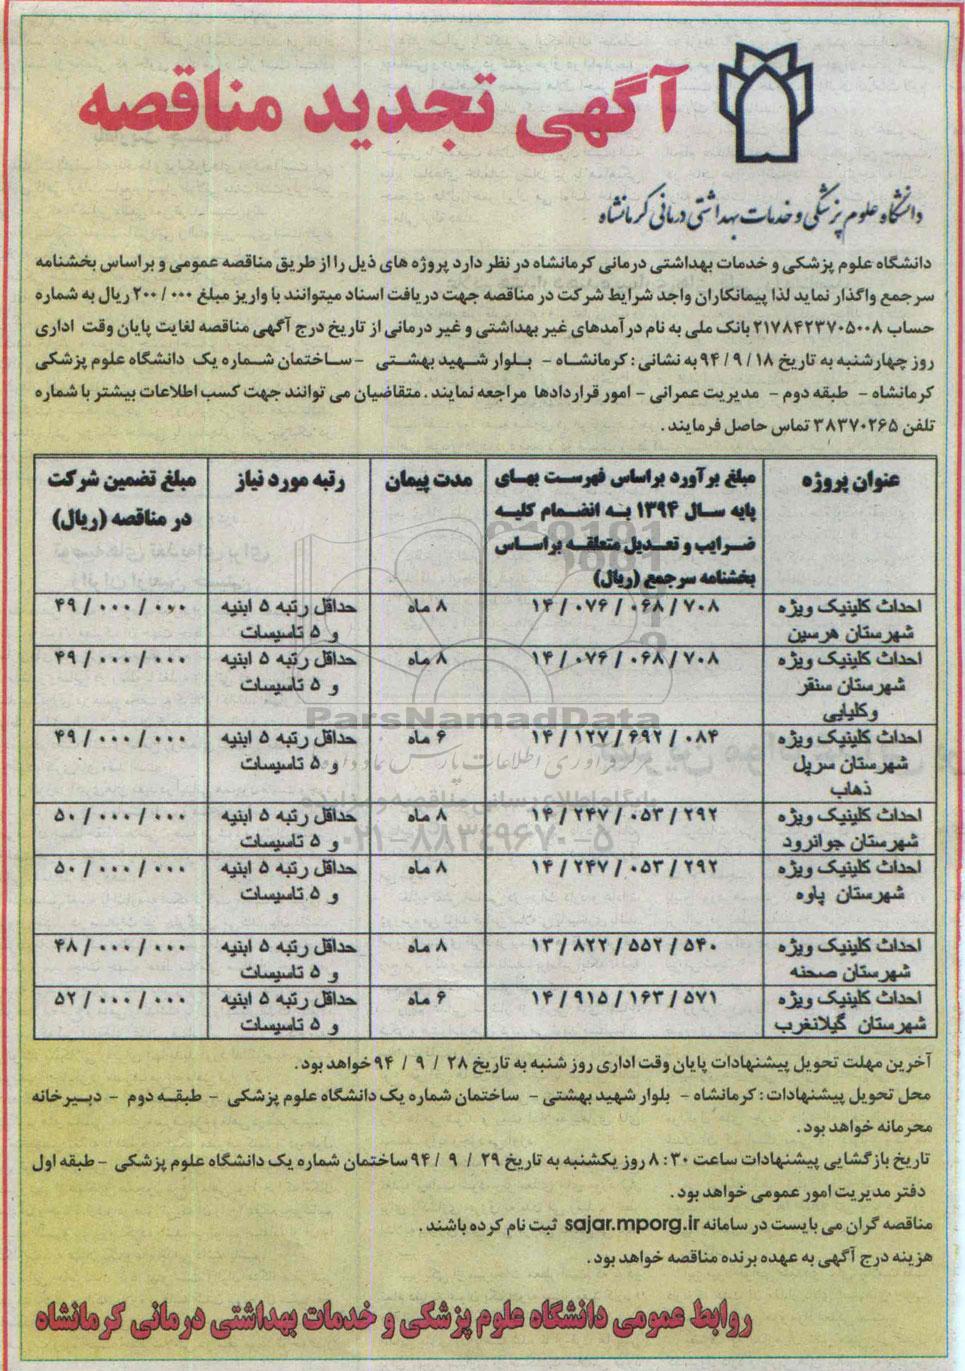 آگهی تجدید مناقصه
دانشگاه علوم پزشکی و خدمات بهداشتی درمانی کرمانشاه
دانشگاه علوم پزشکی و خدمات بهداشتی درمانی کرمانشاه در نظر دارد پروژه های ذیل را از طریق مناقصه عمومی و براساس بخشنامه
سرجمع واگذار نماید لذا پیمانکاران واجد شرایط شرکت در مناقصه جهت دریافت اسناد میتوانند با واریز مبلغ ۲۰۰/۰۰۰ ریال به شماره
حساب ۲۱۷۸۴۲۳۷۰۵۰۰۸ بانک ملی به نام درآمدهای غیر بهداشتی و غیر درمانی از تاریخ درج آگهی مناقصه لغایت پایان وقت اداری
روز چهارشنبه به تاریخ ۹۴/۹/۱۸ به نشانی : کرمانشاه - بلوار شهید بهشتی - ساختمان شماره یک دانشگاه علوم پزشکی
کرمانشاه - طبقه دوم - مدیریت عمرانی - امور قراردادها مراجعه نمایند . متقاضیان می توانند جهت کسب اطلاعات بیشتر با شماره
تلفن ۳۸۳۷۰۲۶۵ تماس حاصل فرمایند .
عنوان پروژه | مبلغ برآورد براساس فهرست بهای | مدت پیمان | رتبه مورد نیاز | مبلغ تضمین شرکت
پایه سال ۱۳۹۴ به انضمام کلیه | در مناقصه (ریال)
ضرایب و تعدیل متعلقه براساس
بخشنامه سرجمع (ریال)
احداث کلینیک ویژه | ۱۴/۰۷۶/۰۶۸/۷۰۸ | ۸ ماه | حداقل رتبه ۵ ابنیه | ۴۹/۰۰۰/۰۰۰
شهرستان هرسین | و ۵ تاسیسات
احداث کلینیک ویژه | ۱۴/۰۷۶/۰۶۸/۷۰۸ | ۸ ماه | حداقل رتبه ۵ ابنیه | ۴۹/۰۰۰/۰۰۰
شهرستان سنقر | و ۵ تاسیسات
وکلیایی
احداث کلینیک ویژه | ۱۴/۱۲۷/۶۹۲/۰۸۴ | ۶ ماه | حداقل رتبه ۵ ابنیه | ۴۹/۰۰۰/۰۰۰
شهرستان سرپل | و ۵ تاسیسات
ذهاب
احداث کلینیک ویژه | ۱۴/۲۴۷/۰۵۳/۲۹۲ | ۸ ماه | حداقل رتبه ۵ ابنیه | ۵۰/۰۰۰/۰۰۰
شهرستان جوانرود | و ۵ تاسیسات
احداث کلینیک ویژه | ۱۴/۲۴۷/۰۵۳/۲۹۲ | ۸ ماه | حداقل رتبه ۵ ابنیه | ۵۰/۰۰۰/۰۰۰
شهرستان پاوه | و ۵ تاسیسات
احداث کلینیک ویژه | ۱۳/۸۲۲/۵۵۲/۵۴۰ | ۸ ماه | حداقل رتبه ۵ ابنیه | ۴۸/۰۰۰/۰۰۰
شهرستان صحنه | و ۵ تاسیسات
احداث کلینیک ویژه | ۱۴/۹۱۵/۱۶۳/۵۷۱ | ۶ ماه | حداقل رتبه ۵ ابنیه | ۵۲/۰۰۰/۰۰۰
شهرستان گیلانغرب | و ۵ تاسیسات
ParsNamadData
۰۲۱-۸۸۳۴۹۶۷۰-۵
آخرین مهلت تحویل پیشنهادات پایان وقت اداری روز شنبه به تاریخ ۹۴/۹/۲۸ خواهد بود .
محل تحویل پیشنهادات : کرمانشاه - بلوار شهید بهشتی - ساختمان شماره یک دانشگاه علوم پزشکی - طبقه دوم - دبیرخانه
محرمانه خواهد بود .
تاریخ بازگشایی پیشنهادات ساعت ۸:۳۰ روز یکشنبه به تاریخ ۹۴/۹/۲۹ ساختمان شماره یک دانشگاه علوم پزشکی - طبقه اول
دفتر مدیریت امور عمومی خواهد بود .
مناقصه گران می بایست در سامانه sajar.mporg.ir ثبت نام کرده باشند .
هزینه درج آگهی به عهده برنده مناقصه خواهد بود .
روابط عمومی دانشگاه علوم پزشکی و خدمات بهداشتی درمانی کرمانشاه